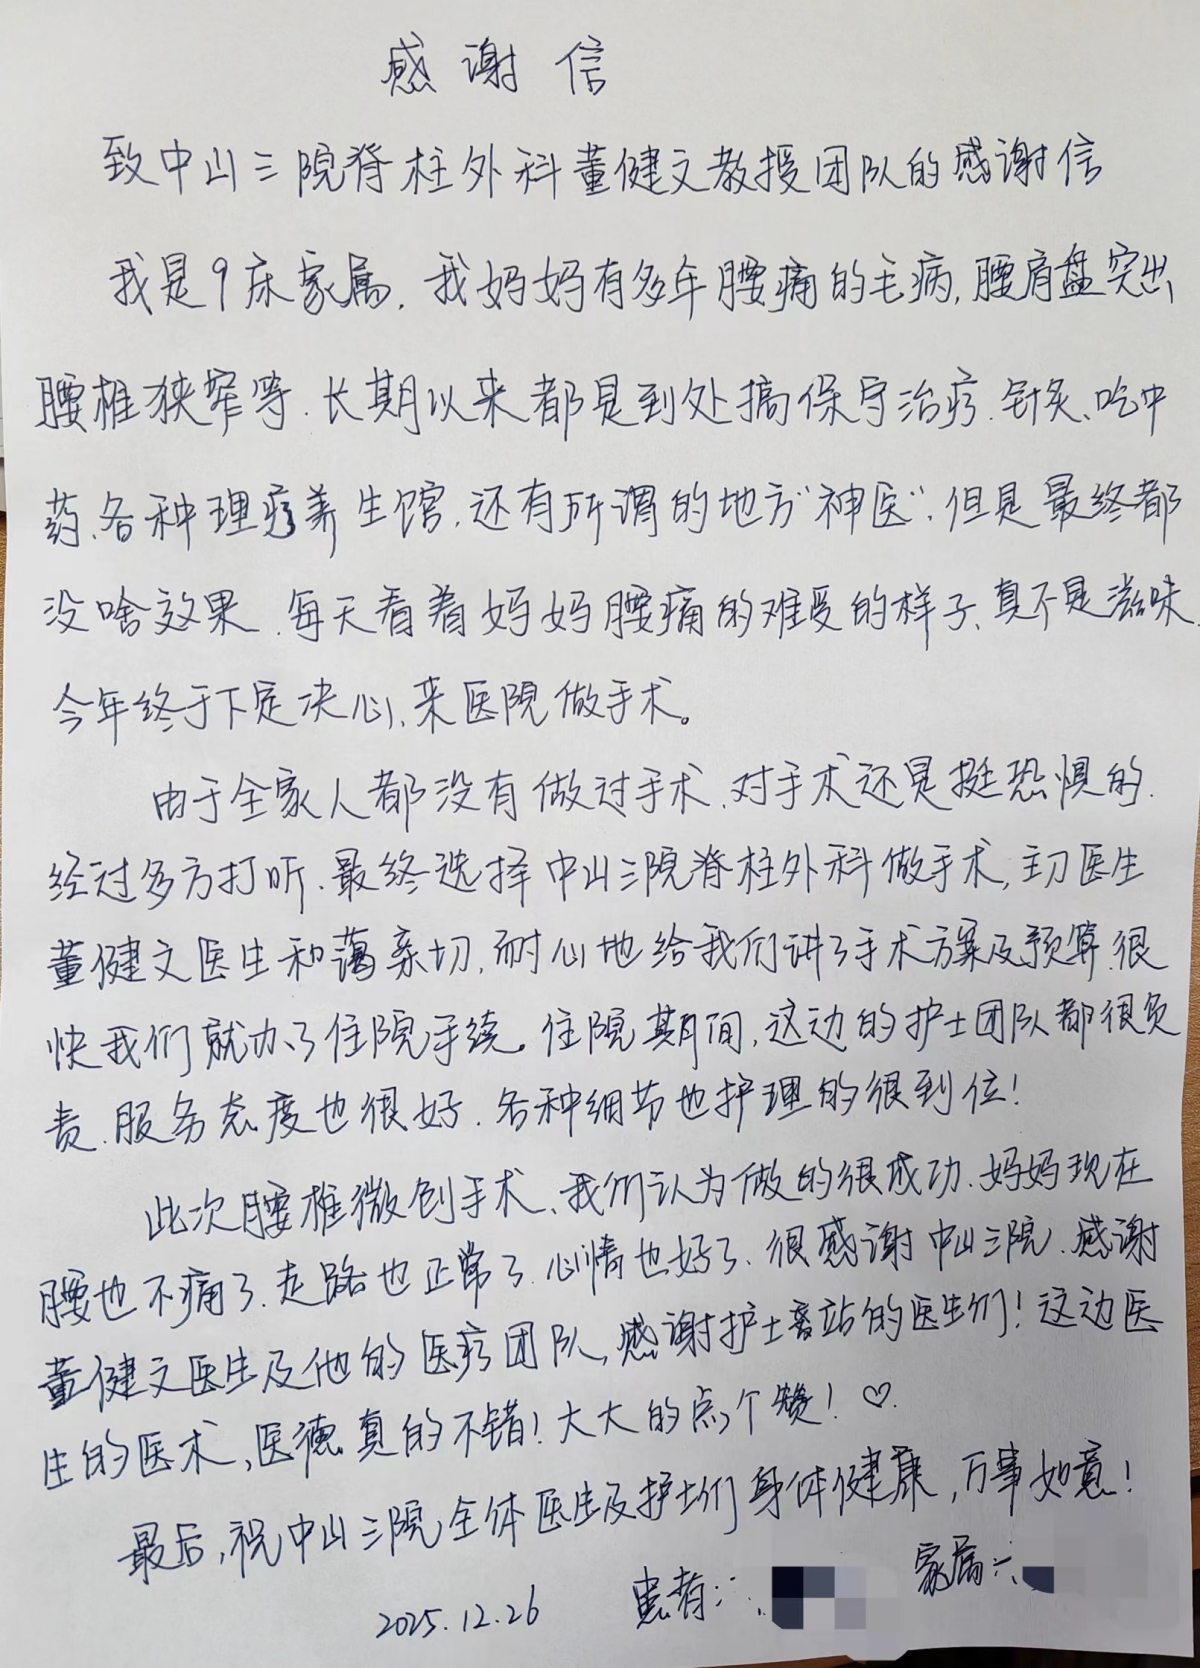 感谢信
致中山三院脊柱外科董健文教授团队的感谢信
我是9床家属，我妈妈有多年腰痛的毛病，腰肩盘突出
腰椎狭窄等，长期以来都是到处搞保守治疗，针灸、吃中
药、各种理疗养生馆，还有所谓的地方“神医”，但是最终都
没啥效果，每天看着妈妈腰痛的难受的样子，真不是滋味，
今年终于下定决心，来医院做手术。
由于全家人都没有做过手术，对手术还是挺恐惧的，
经过多方打听，最终选择中山三院脊柱外科做手术，主刀医生
董健文医生和蔼亲切，耐心地给我们讲了手术方案及预算，很
快我们就办了住院手续。住院期间，这边的护士团队都很负
责，服务态度也很好，各种细节也护理的很到位！
此次腰椎微创手术，我们认为做的很成功，妈妈现在
腰也不痛了，走路也正常了，心情也好了，很感谢中山三院，感谢
董健文医生及他的医疗团队，感谢护士站的医生们！这边医
生的医术，医德真的不错！大大的点个赞！♡
最后，祝中山三院全体医生及护士们身体健康，万事如意！
患者： 家属：
2025.12.26